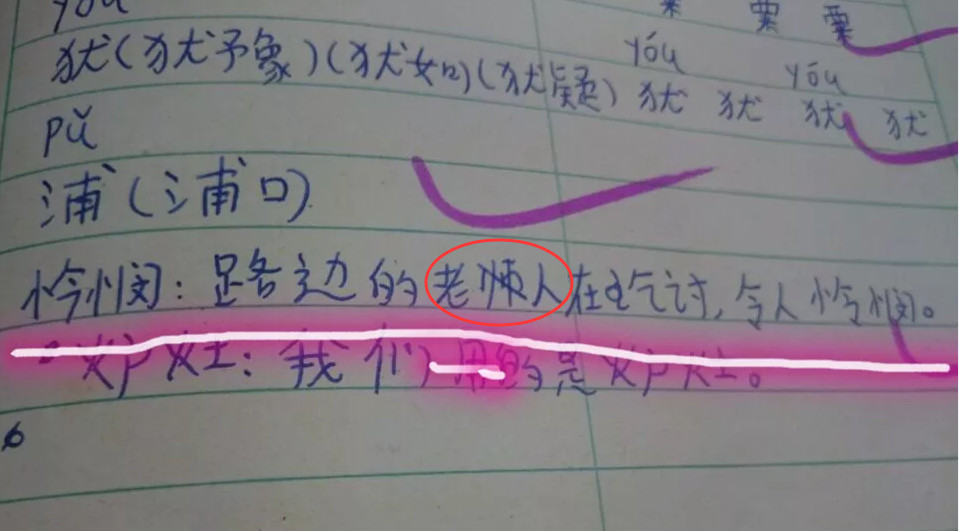 yóu
yóu yóu
犹(犹豫)(犹如)(犹疑) 犹 犹 犹 犹
pǔ
浦(浦口)
怜悯:路边的老人在乞讨,令人怜悯。
炉灶:我们用的是炉灶。